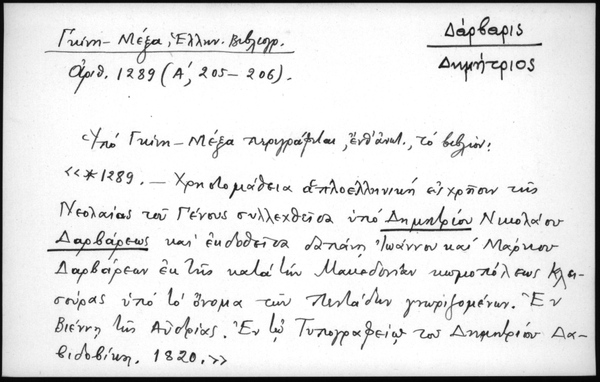 Γκίνη – Μέξα, Ἑλλην. Βιβλιογρ.
ἀριθ. 1289 (Α΄, 205 – 206).
Δάρβαρις
Δημήτριος
Ὑπό Γκίνη – Μέξα περιγράφεται, ἐνθ' ἀνωτ., τό βιβλίον:
<<*1289. — Χρηστομάθεια ἁπλοελληνική εἰς χρῆσιν τῆς
Νεολαίας τοῦ Γένους συλλεχθεῖσα ὑπό Δημητρίου Νικολάου
Δαρβάρεως καί ἐκδοθεῖσα δαπάνῃ Ἰωάννου καί Μάρκου
Δαρβάρεων ἐκ τῆς κατά τήν Μακεδονίαν κωμοπόλεως Κλει-
σούρας ὑπό τό ὄνομα τῶν Πενταδῶν γνωριζομένων. Ἐν
Βιέννῃ τῆς Αὐστρίας. Ἐν τῷ Τυπογραφείῳ τοῦ Δημητρίου Δα-
βιδοβίκη. 1820.>>